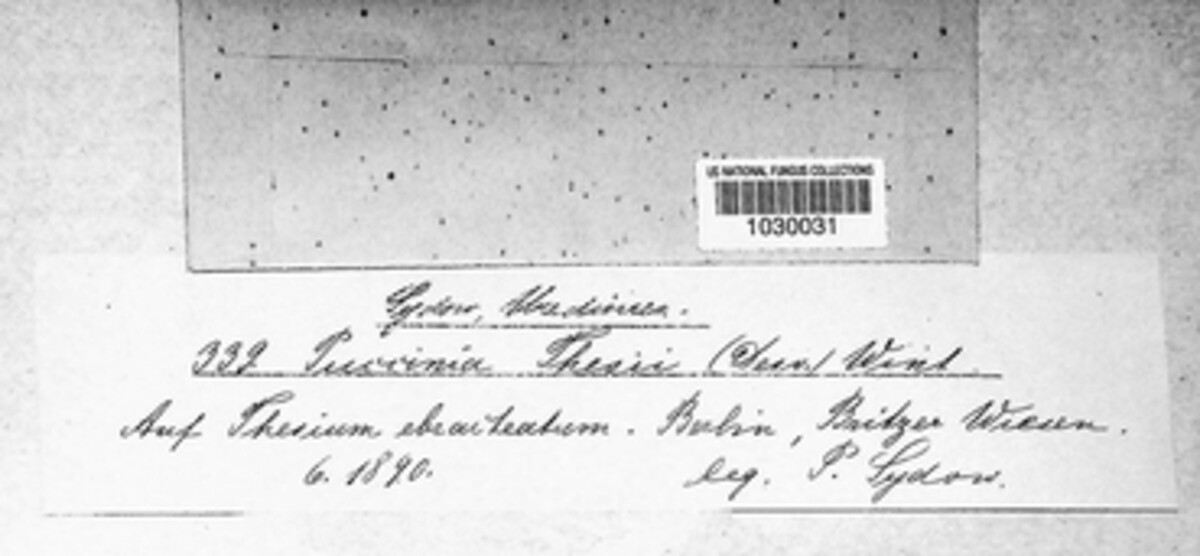 US NATIONAL FUNGUS COLLECTIONS
1030031
Sydow, Uredineen.
332 Puccinia Thesii (Desv.) Wint.
Auf Thesium ebracteatum. Berlin, Britzer Wiesen.
6. 1890. leg. P. Sydow.